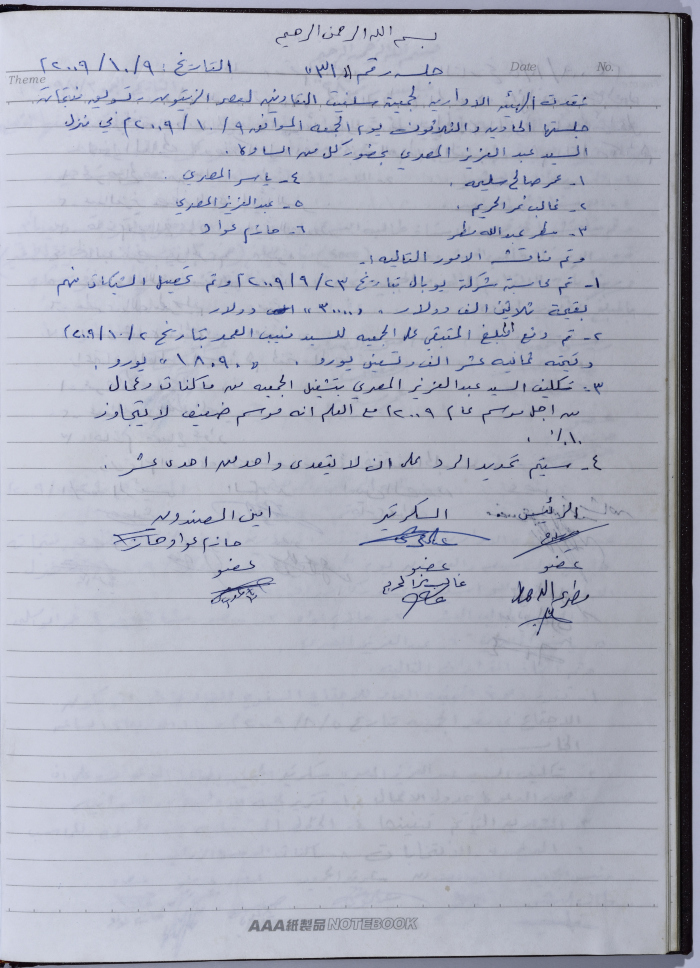 بسم الله الرحمن الرحيم
No.
Date
Theme
جلسه رقم "٣١" التاريخ: ٢٠٠٩/١٠/٩
عقدت الهيئه الاداريه لجمعية سلفيت التعاونيه لعصر الزيتون وتسويق منتجاته
جلستها الحاديه والثلاثون يوم الجمعه الموافق ٢٠٠٩/١٠/٩ في منزل
السيد عبد العزيز المصري بحضور كل من الساده.
١- عمر صالح سليمه . ٤- ياسر المصري .
٢- غالب نمر الحريم . ٥- عبد العزيز المصري
٣- مطر عبدالله مطر ٦- حازم عواد
وتم مناقشه الامور التاليه :
١- تم محاسبة شركة يوبال بتاريخ ٢٠٠٩/٩/٢٣ وتم تحصيل الشيكات منهم
بقيمة ثلاثين الف دولار . "٣٠٠٠٠" دولار
٢- تم دفع المبلغ المتبقي على الجمعيه للسيد منيب العمد بتاريخ ٢٠٠٩/١٠/٢
وقيمته ثمانيه عشر الف وتسعين يورو . "١٨٠٩٠" يورو .
٣- تكليف السيد عبد العزيز المصري بتشغيل الجمعيه من ماكنات وعمال
من اجل موسم عام ٢٠٠٩ مع العلم انه موسم ضعيف لا يتجاوز
١٠٪ .
٤- سيتم تحديد الرد على ان لا يتعدى واحد من احدى عشر .
الرئيس السكرتير امين الصندوق
حازم عواد
عضو عضو عضو
مطر عبدالله مطر غالب نمر الحريم
AAA紙製品 NOTEBOOK